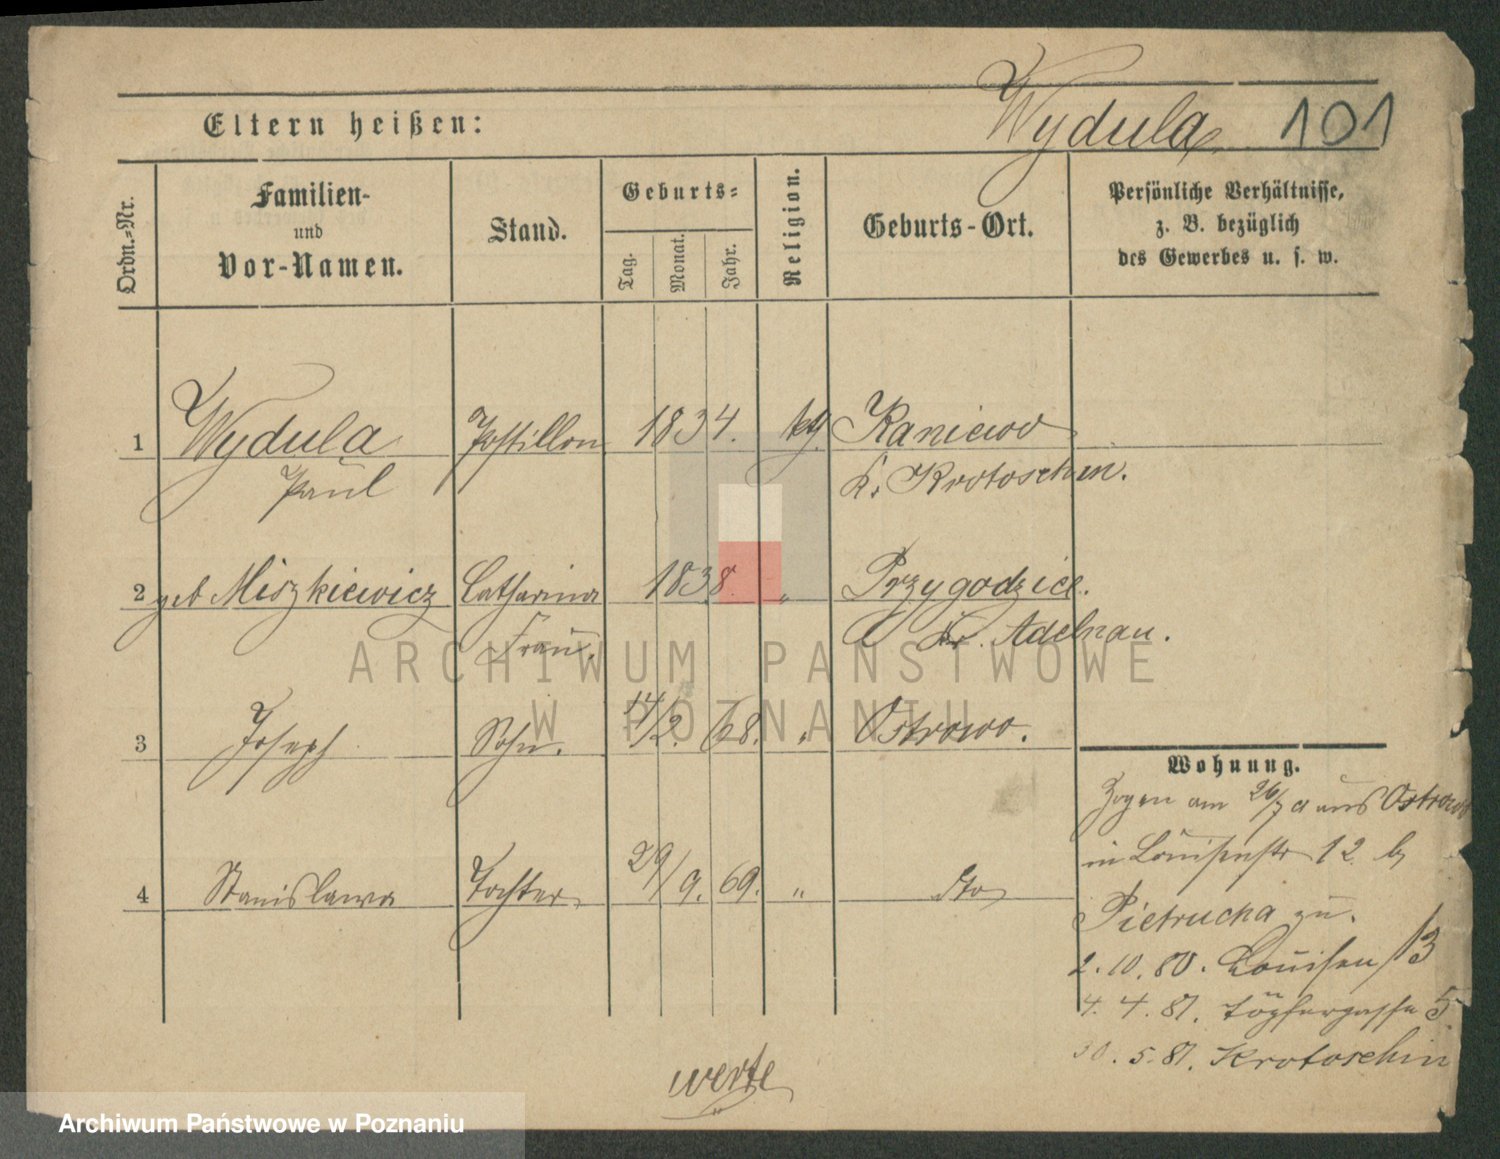 Wydula 101
Eltern heißen:
Ordn.-Nr.
Familien-
und
Vor-Namen.
Stand.
Geburts-
Tag.
Monat.
Jahr.
Religion.
Geburts-Ort.
Persönliche Verhältnisse,
z. B. bezüglich
des Gewerbes u. s. w.
1 Wydula Postillon 1834. ktg Kaniewo
Paul K. Krotoschin.
2 geb Miszkiewicz Catharina 1838. " Przygodzice.
Frau. Kr. Adelnau.
3 Joseph Sohn. 14/2. 68. " Ostrowo.
4 Stanislawa Tochter. 29/9. 69. " dto
Wohnung.
Zogen am 26/7 a aus Ostrowo
in Louisenstr 12 b
Pietrucha zu.
2.10.80. Louisen 13
4.4.81. Töpfergasse 5
30.5.81. Krotoschin
ARCHIWUM PAŃSTWOWE
W POZNANIU
Archiwum Państwowe w Poznaniu